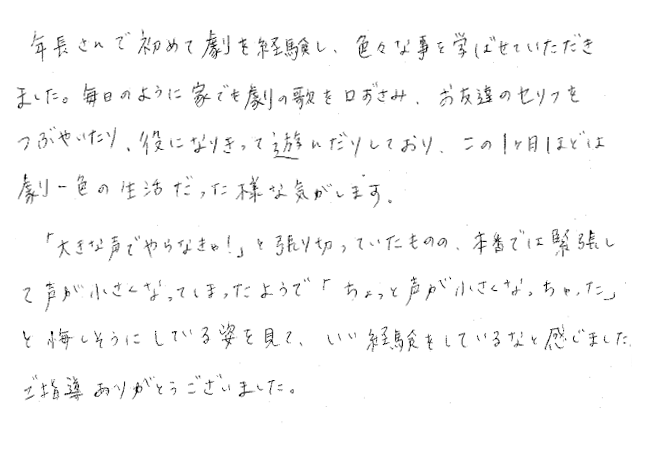 年長さんで初めて劇を経験し、色々な事を学ばせていただき
ました。毎日のように家でも劇の歌を口ずさみ、お友達のセリフを
つぶやいたり、役になりきって遊んだりしており、この1ヶ月ほどは
劇一色の生活だった様な気がします。
「大きな声でやらなきゃ！」と張り切っていたものの、本番では緊張し
て声が小さくなってしまったようで「ちょっと声が小さくなっちゃった」
と悔しそうにしている姿を見て、いい経験をしているなと感じました。
ご指導ありがとうございました。